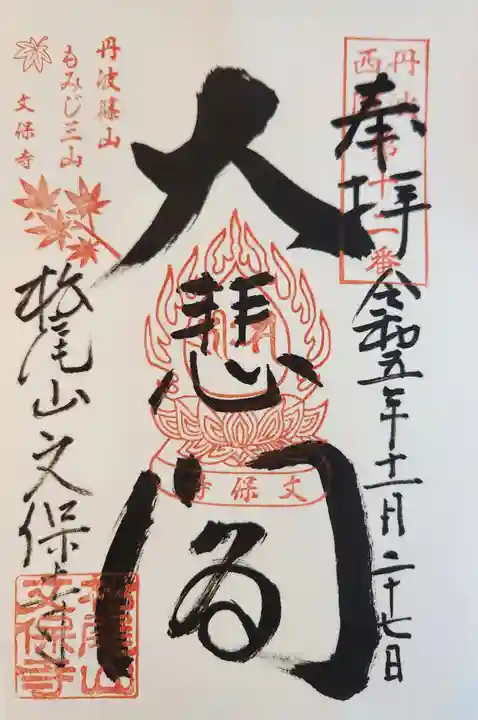 丹波
西国
第十一番
奉拝
令和五年十一月二十七日
大悲閣
文保寺
丹波篠山
もみじ三山
文保寺
松尾山文保寺
松尾山
文保寺